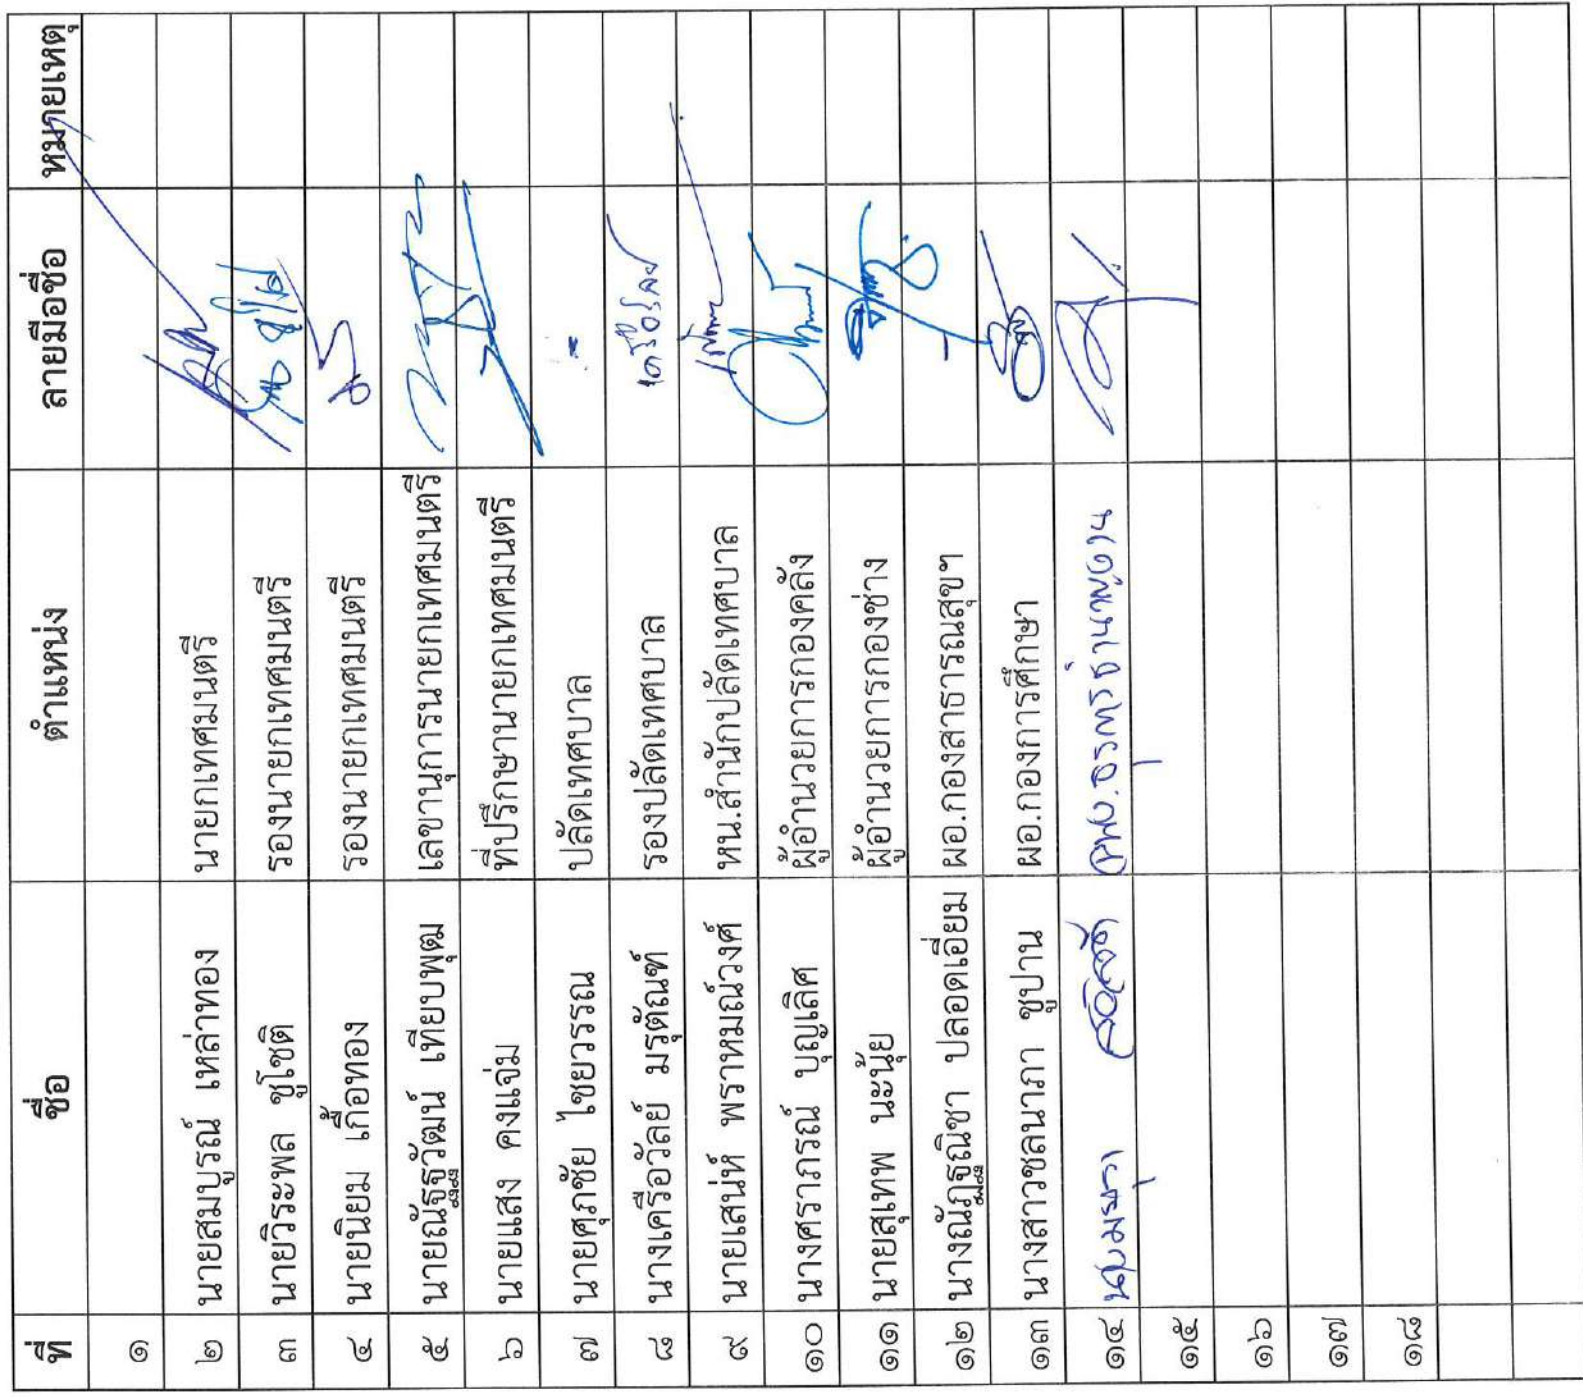 ที่ ชื่อ ตำแหน่ง ลายมือชื่อ หมายเหตุ
๑
๒ นายสมบูรณ์ เหล่าทอง นายกเทศมนตรี
๓ นายวิระพล ชูโชติ รองนายกเทศมนตรี
๔ นายนิยม เกื้อทอง รองนายกเทศมนตรี
๕ นายณัฐธวัฒน์ เทียบพุฒ เลขานุการนายกเทศมนตรี
๖ นายแสง คงแจ่ม ที่ปรึกษานายกเทศมนตรี
๗ นายศุภชัย ไชยวรรณ ปลัดเทศบาล -
๘ นางเครือวัลย์ มรุตัณฑ์ รองปลัดเทศบาล เครือวัลย์
๙ นายเสน่ห์ พราหมณ์วงศ์ หน.สำนักปลัดเทศบาล
๑๐ นางศราภรณ์ บุญเลิศ ผู้อำนวยการกองคลัง
๑๑ นายสุเทพ นะนุ้ย ผู้อำนวยการกองช่าง
๑๒ นางณัฏฐณิชา ปลอดเอี่ยม ผอ.กองสาธารณสุขฯ
๑๓ นางสาวชลนาภา ชูปาน ผอ.กองการศึกษา
๑๔
๑๕
๑๖
๑๗
๑๘